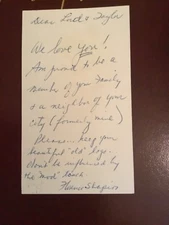 Dear Lord & Taylor
We love you!
Am proud to be a
member of your family
as a neighbor of your
city (formerly mine)
Please - keep your
beautiful "old" logo.
don't be influenced by
the "mod" look.
Eleanor Shapiro